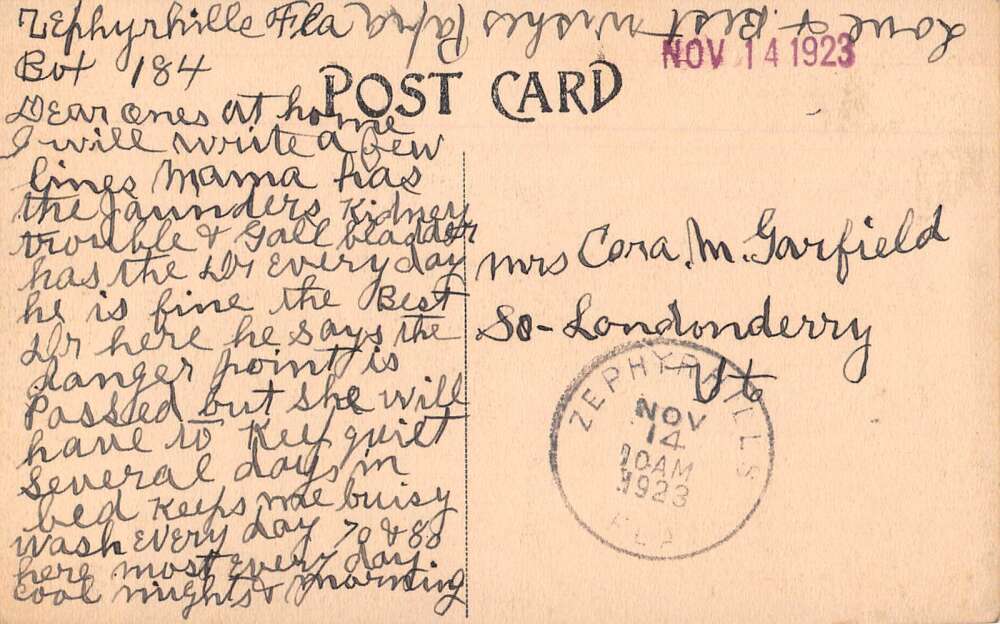 Zephyrhills Fla
Box 184
Dear ones at home
I will write a few
lines Mama has
the Jaunders Kidney
trouble & Gall bladdar
has the Dr Every day
he is fine the Best
Dr here he says the
danger point is
Passed but she will
have to Keep quiet
Several days in
bed Keeps me buisy
wash EVERY day 70 & 80
here most Every day
cool nights & morning
Love & Best wishes Papa
NOV 14 1923
POST CARD
Mrs Cora. M. Garfield
So - Londonderry
Vt
ZEPHYRHILLS
NOV
14
10AM
1923
FLA